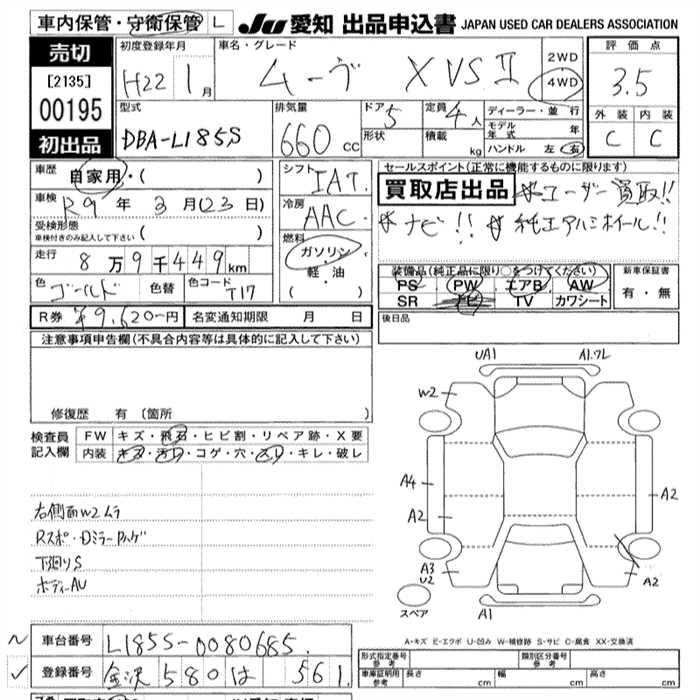 車内保管・守衛保管 L
JU 愛知 出品申込書 JAPAN USED CAR DEALERS ASSOCIATION
売切
[2135]
00195
初出品
初度登録年月 車名・グレード 2WD 評価点
H22 1月 ムーヴ XVSⅡ 4WD 3.5
型式 排気量 ドア 5 定員 4人 ディーラー・並行 外装 内装
DBA-L185S 660cc 形状 積載 kg モデル年式 年 C C
ハンドル 左 右
車歴 自家用・( )
車検 R9年3月(23日)
受検形態
車検付きのみ記入して下さい ( )
走行 8万9千449km
色 ゴールド 色替 色コード T17
シフト IAT.
冷房 AAC
燃料
ガソリン
軽・油
( )
セールスポイント(正常に機能するものに限ります)
買取店出品 ユーザー買取!!
ナビ!! 純正アルミホイール!!
装備品(純正品に限り○をつけてください) 新車保証書
PS・PW・エアB・AW 有・無
SR ナビ TV カワシート
R券 ¥9,620-円 名変通知期限 月 日
後日品
注意事項申告欄(不具合内容等は具体的に記入して下さい)
修復歴 有 (箇所
検査員 FW キズ・飛石・ヒビ割・リペア跡・X要
記入欄 内装 キズ・汚レ・コゲ・穴・スレ・キレ・破レ
右側面W2ムラ
Rスポ・Dミラー Pハゲ
下廻りS
ボディーAU
UA1 A1.フL
W2
A4
A2 A2
A3
U2 A2
スペア A1
A-キズ E-エクボ U-凹み W-補修跡 S-サビ C-腐食 XX-交換済
車台番号 L185S-0080685
登録番号 金沢 580 は 561
型式指定番号 参考 類別区分番号 参考
車庫証明用 参考 長さ cm 幅 cm 高さ cm